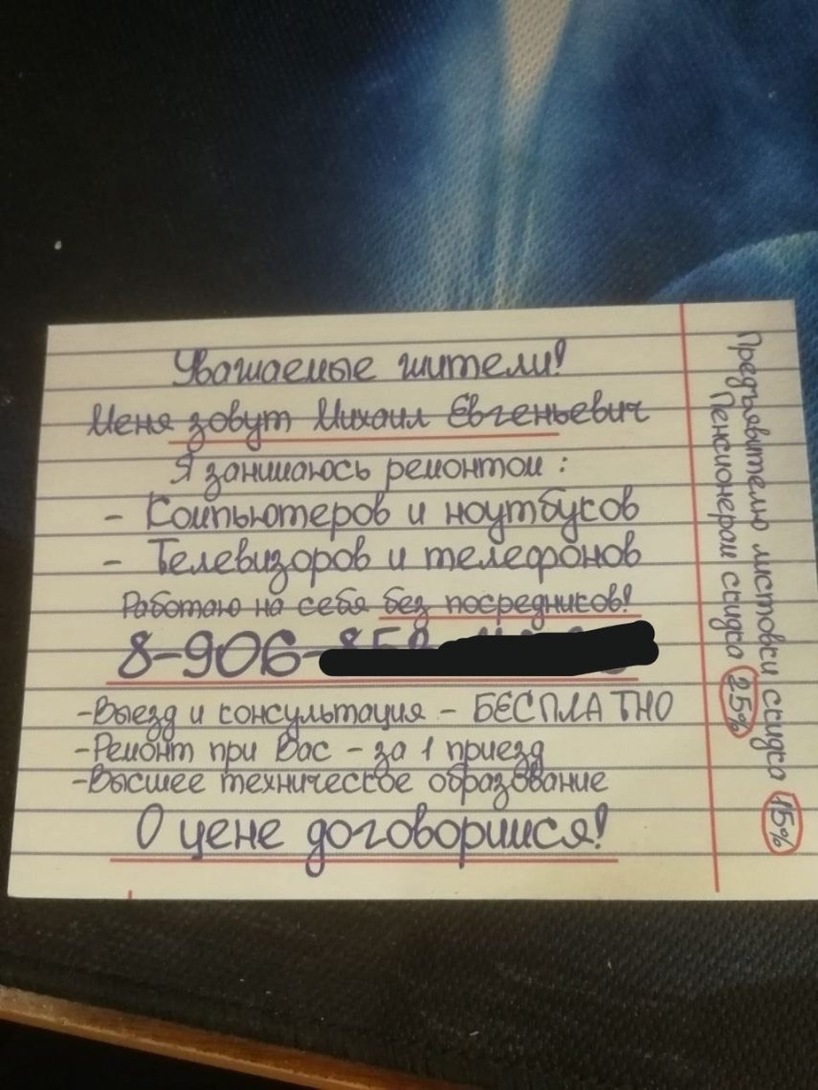 Уважаемые жители!
Меня зовут Михаил Евгеньевич
Я занимаюсь ремонтом:
- Компьютеров и ноутбуков
- Телевизоров и телефонов
Работаю на себя без посредников!
8-906-
- Выезд и консультация - БЕСПЛАТНО
- Ремонт при Вас - за 1 приезд
- Высшее техническое образование
О цене договоримся!
Предъявителю листовки скидка 15%
Пенсионерам скидка 25%